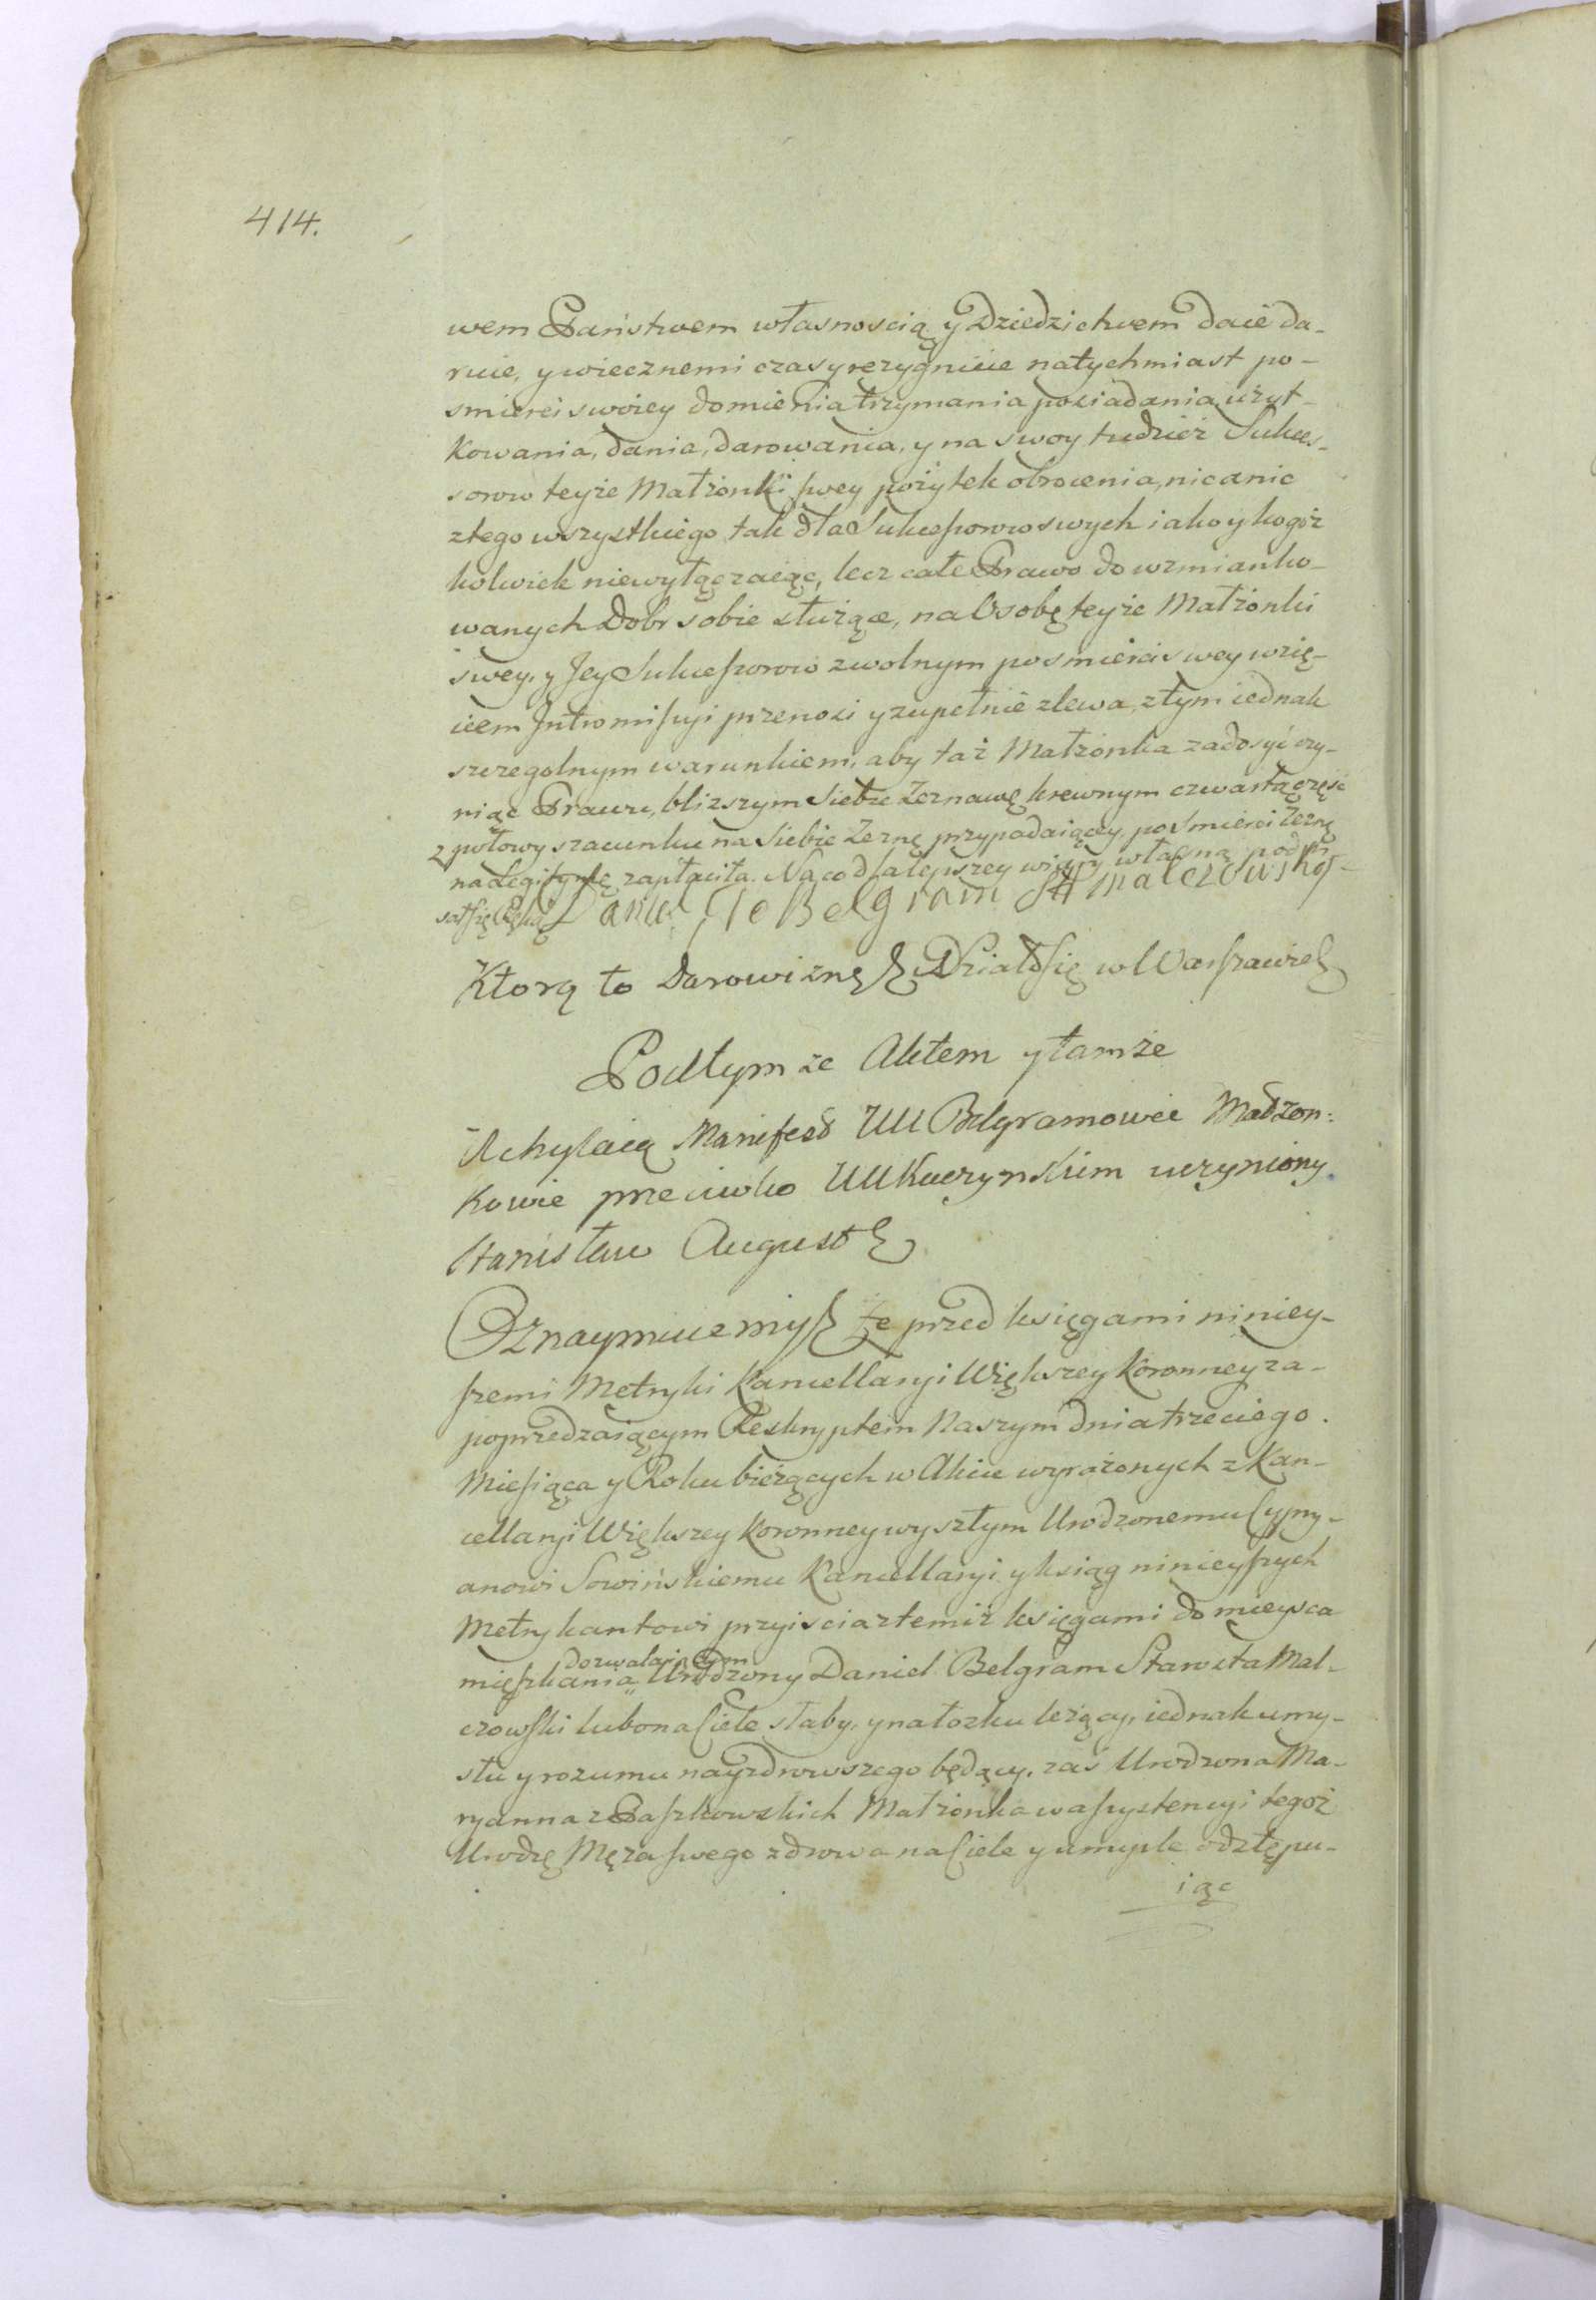 414.
wem Państwem własnoscią y Dziedzictwem daie da-
ruie, y wiecznemi czasy rezygnuie natychmiast po-
smierci swoiey do mienia trzymania posiadania, użyt-
kowania, dania, darowania, y na swoy tudzież Sukces-
sorow teyże Małżonki swey pożytek obrocenia, nic a nic
z tego wszystkiego tak dla Sukcessorow swych iako y kogoż
kolwiek niewyłączaiąc, lecz całe Prawo do wzmianko-
wanych Dobr sobie służące, na Osobę teyże Małżonki
swey, y Jey Sukcessorow z wolnym po smierci swey wzię-
ciem Intromissyi przenosi y zupełnie zlewa, z tym iednak
szczegolnym warunkiem, aby taż Małżonka zadosyć czy-
niąc Prawu, blizszym Siebie Zeznawcę krewnym czwartą częsc
z połowy szacunku na Siebie Zezną przypadaiącey, po Smierci Zezną
na Legitymę zapłaciła. Na co dla lepszey wiary własną podpi-
sał się Ręką Daniel de Belgram St. Malczowski
Ktorą to Darowiznę & Działo się w Warszawie &
Pod tym ze Aktem y tamże
Uchylaią Manifest UU Belgramowie Małżon:
kowie przeciwko UU Kuczynskim uczyniony.
Stanisław August &
Oznaymuiemy & że przed księgami niniey-
szemi Metryki Kancellaryi Większey Koronney za-
poprzedzaiącym Reskryptem Naszym dnia trzeciego.
Miesiąca y Roku bieżących w Akcie wyrażonych z Kan-
cellaryi Większey Koronney wyszłym Urodzonemu Cypry-
anowi Sowińskiemu Kancellaryi y ksiąg ninieyszych
Metrykantowi przyiscia z temiż księgami do mieysca
dozwalaiącym
mieszkania Urodzony Daniel Belgram Starosta Mal-
czowski lubo na Ciele słaby, y na łozku leżący, iednak umy-
słu y rozumu nayzdrowszego będący, zaś Urodzona Ma-
ryanna z Paszkowskich Małżonka w assystencyi tegoż
Urodzę Męża swego zdrowa na Ciele y umysle odstępu-
iąc